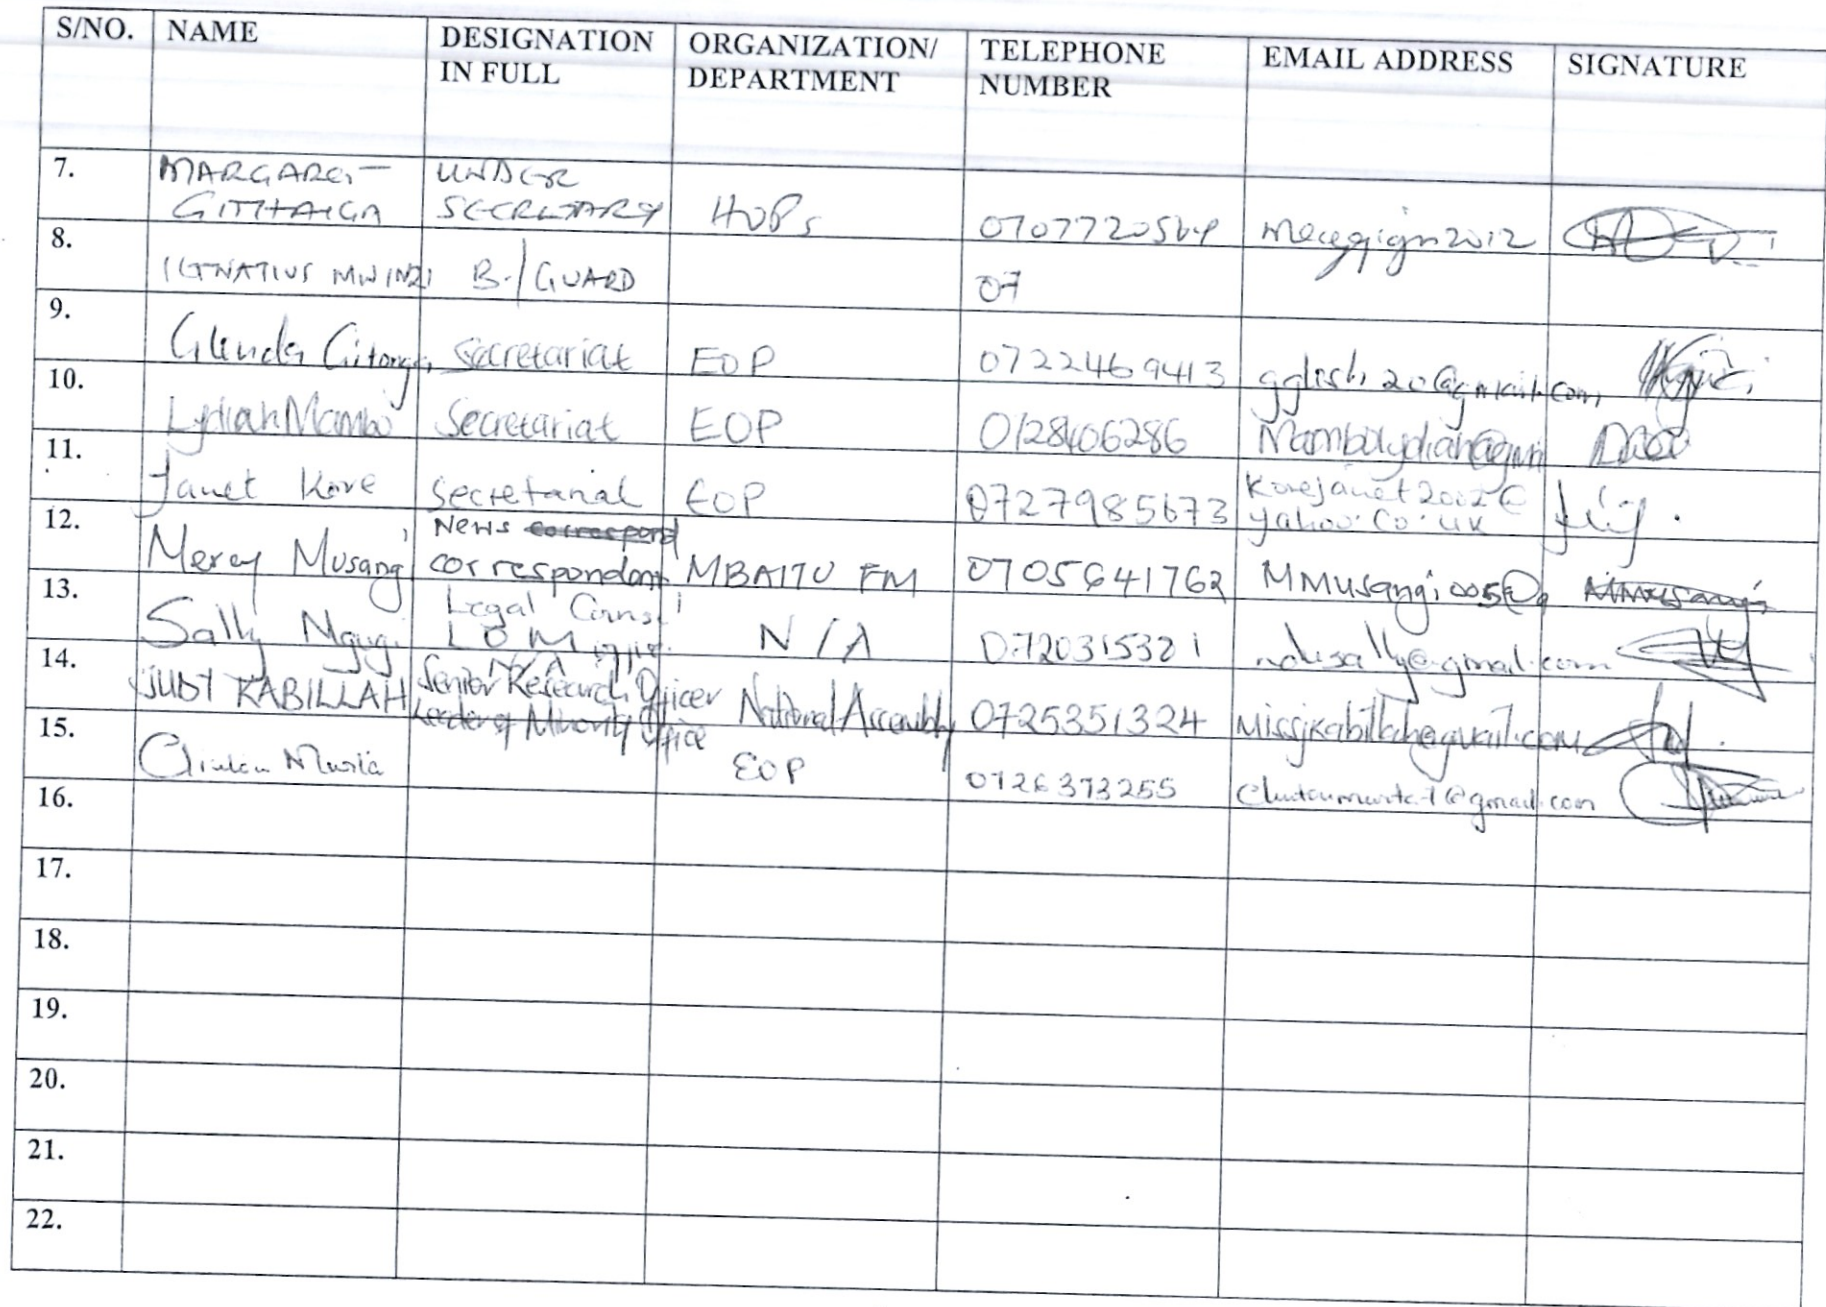 S/NO. NAME DESIGNATION IN FULL ORGANIZATION/ DEPARTMENT TELEPHONE NUMBER EMAIL ADDRESS SIGNATURE
7. MARGARET GITHAIGA UNDER SECRETARY HOPs
8. IGNATIUS MWINZI B./GUARD 07
9. Glenda Gitonga Secretariat EOP 0722469413
10. Lydiah Mambo Secretariat EOP 0128406286 Mambolydiah@gm
11. Janet Kore Secretarial EOP 0727985673 Korejanet2002@ yahoo.co.uk
12. Mercy Musangi News correspond correspondent MBAITU FM 0705641762 MMusangi005@g MMusangi
13. Sally Ngugi Legal N/A 0720315321 ndusally@gmail.com
14. JUDY KABILLAH N/A Senior Research Officer Leader of Minority Office National Assembly 0725351324 Missjkabillah@gmail.com
15. Clinton EOP 0726373255
16.
17.
18.
19.
20.
21.
22.